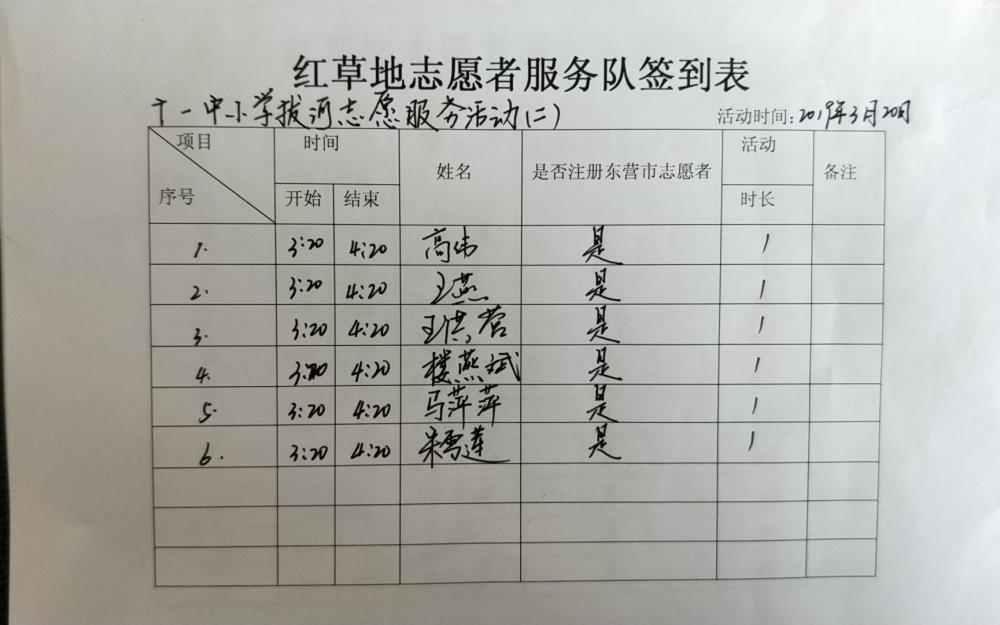 红草地志愿者服务队签到表
十一中小学拔河志愿服务活动(二)
活动时间:2019年3月20日
项目 时间 姓名 是否注册东营市志愿者 活动 备注
序号 开始 结束 时长
1. 3:20 4:20 高伟 是 1
2. 3:20 4:20 王燕 是 1
3. 3:20 4:20 王洪营 是 1
4. 3:20 4:20 楼燕斌 是 1
5. 3:20 4:20 马萍萍 是 1
6. 3:20 4:20 朱雪莲 是 1